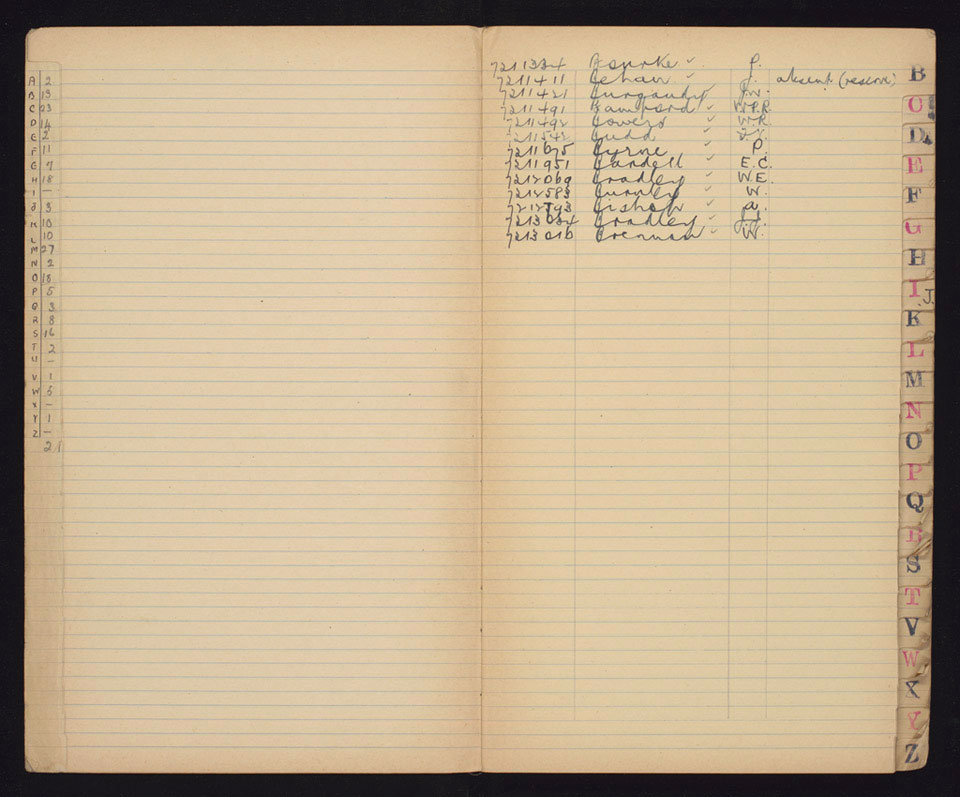 A 2
B 13
C 23
D 14
E 2
F 11
G 7
H 18
I —
J 3
K 10
L 10
M 27
N 2
O 18
P 5
Q 3
R 8
S 16
T 2
U —
V 1
W 5
X —
Y 1
Z —
7211334 Bourke ✓ J.
7211411 Behan ✓ J. absent (reserve)
7211421 Burgandy ✓ J.W.
7211491 Bamford ✓ W.P.R.
7211492 Bowers ✓ W.R.
7211542 Budd ✓
7211675 Byrne ✓ P.
7211951 Bardell ✓ E.C.
7212069 Bradley ✓ W.E.
7212583 Burnley ✓ W.
7212793 Bishop ✓ A.
7213034 Bradley ✓ J.J.
7213016 Brennan ✓ W.
B
C
D
E
F
G
H
I J.
K
L
M
N
O
P
Q
R
S
T
V
W
X
Y
Z